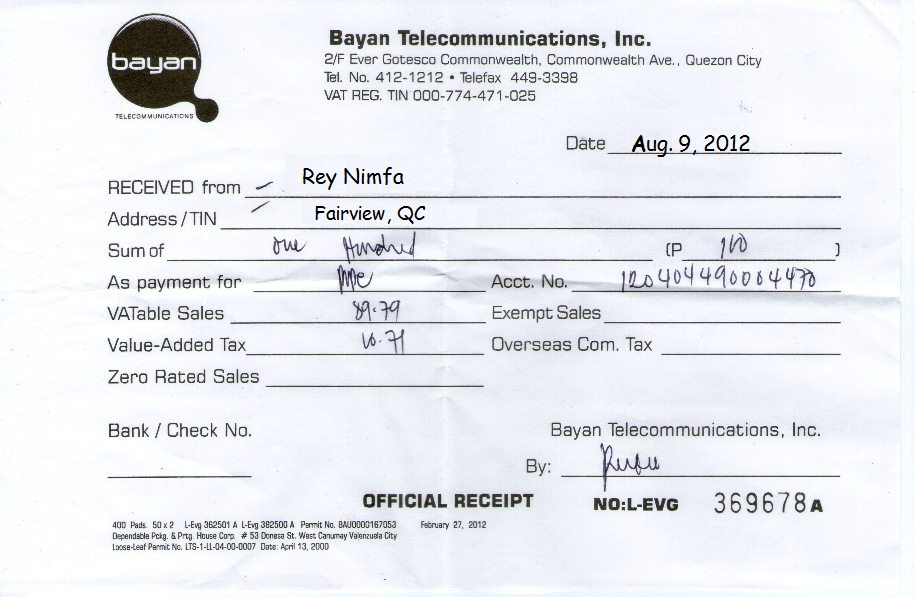 bayan
TELECOMMUNICATIONS
Bayan Telecommunications, Inc.
2/F Ever Gotesco Commonwealth, Commonwealth Ave., Quezon City
Tel. No. 412-1212 • Telefax 449-3398
VAT REG. TIN 000-774-471-025
Date Aug. 9, 2012
RECEIVED from Rey Nimfa
Address/TIN Fairview, QC
Sum of One Hundred (P 100 )
As payment for Acct. No. 120404490004470
VATable Sales 89.79 Exempt Sales
Value-Added Tax 10.71 Overseas Com. Tax
Zero Rated Sales
Bank / Check No. Bayan Telecommunications, Inc.
By:
OFFICIAL RECEIPT NO:L-EVG 369678A
400 Pads. 50 x 2 L-Evg 362501 A L-Evg 382500 A Permit No. 8AU0000167053 February 27, 2012
Dependable Pckg. & Prtg. House Corp. # 53 Donesa St. West Canumay Valenzuela City
Loose-Leaf Permit No. LTS-1-LL-04-00-0007 Date: April 13, 2000